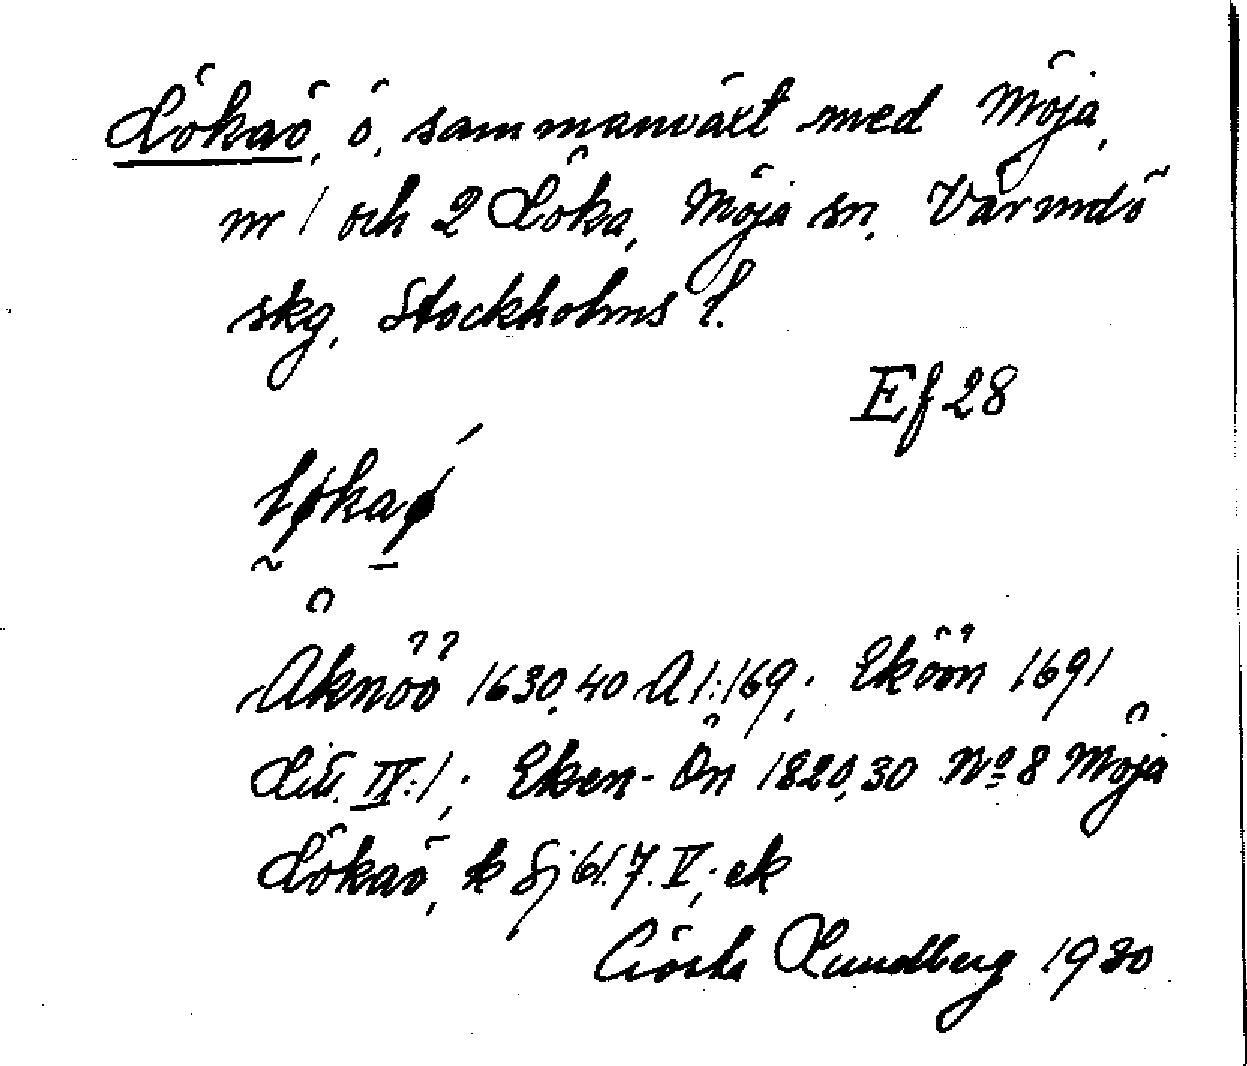 Lökaö, ö, sammanväxt med Möja,
nr 1 och 2 Löka, Möja sn, Värmdö
skg, Stockholms l.
Ef 28
løkaǿ
Åknöö 1630, 40 A 1:169; Eköön 1691
Litt. IV:1; Eken-Ön 1820,30 No 8 Möja
Lökaö, k Sj 61. 7. V; ek
Gösta Lundberg 1930